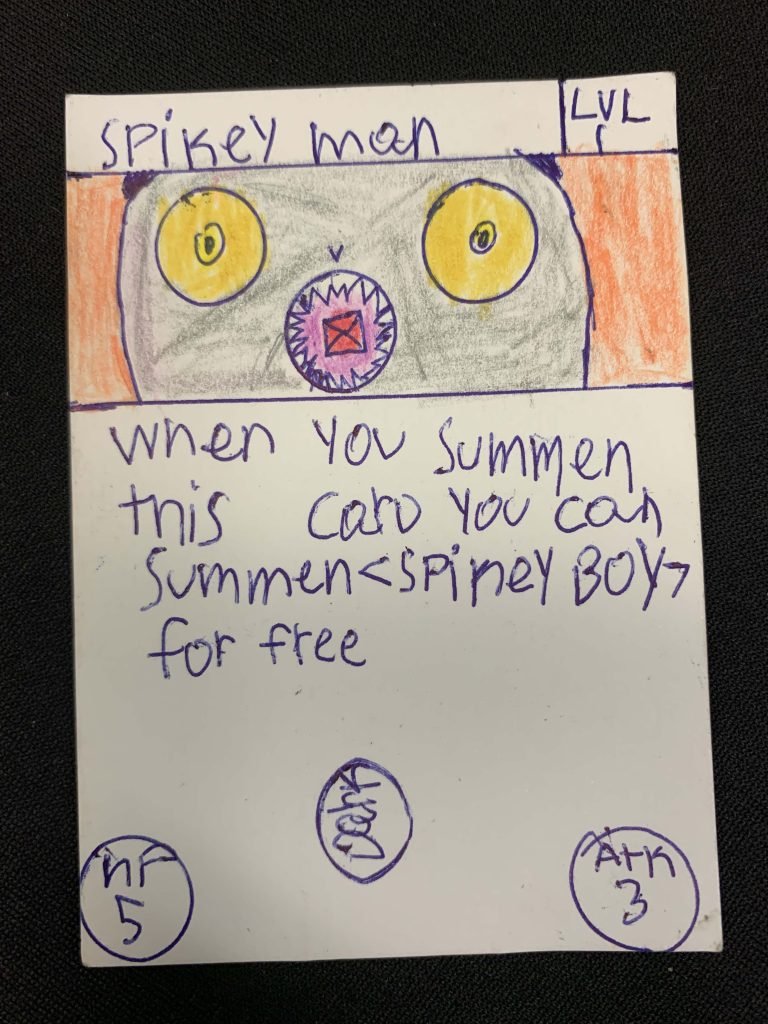 SPikey man
LVL
1
when you summen
this card you can
summen <SPikey BOY>
for free
Dark
HP
5
ATK
3